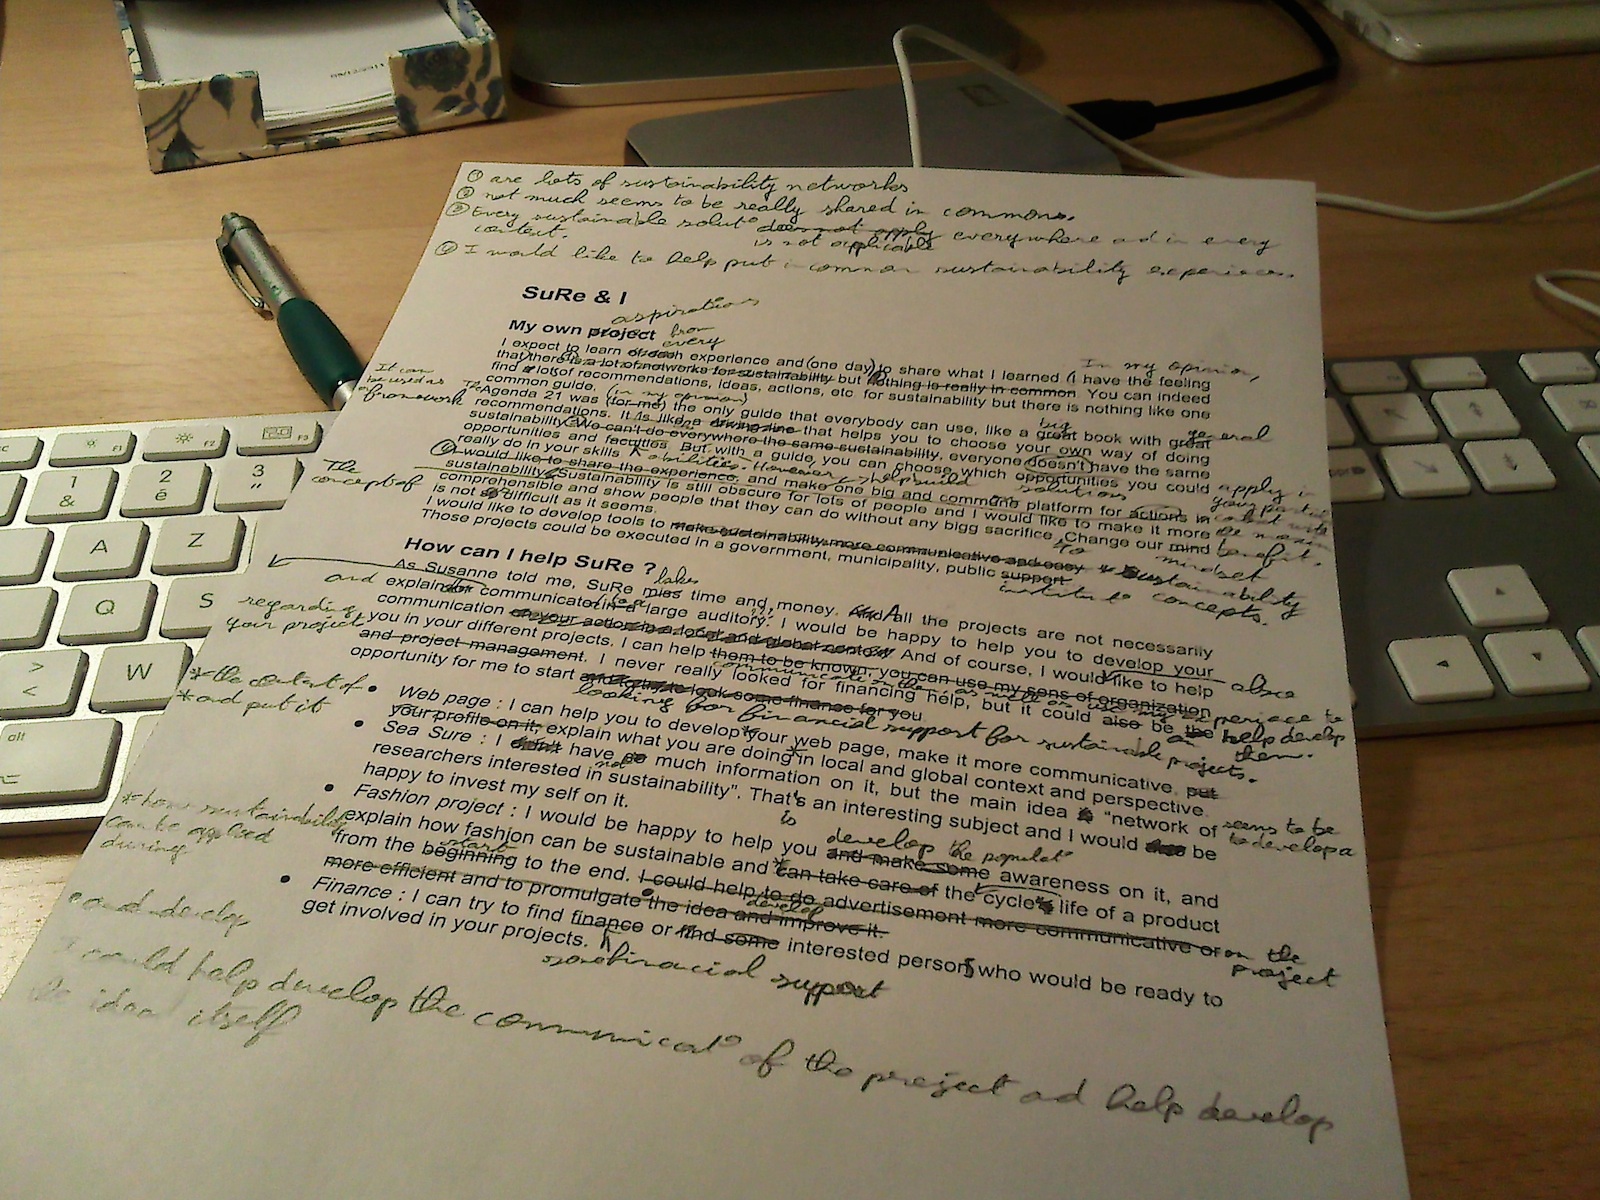 ① are lots of sustainability networks
② not much seems to be really shared in commons.
③ Every sustainable solut° does not apply everywhere ad in every
context. is not applicable
④ I would like to help put in common sustainability experiences
SuRe & I
aspirations
My own project
from
every
I expect to learn experience and (one day) to share what I learned (I have the feeling
In my opinion,
that there is a lot of networks for sustainability but nothing is really in common. You can indeed
find lots of recommendations, ideas, actions, etc for sustainability but there is nothing like one
common guide.
It can
be used as
framework
(in my opinion)
The Agenda 21 was (for me) the only guide that everybody can use, like a great book with great
big
general
recommendations. It is like a that helps you to choose your own way of doing
sustainability. We can't do everywhere the same sustainability, everyone doesn't have the same
opportunities and faculties. But with a guide, you can choose which opportunities you could
really do in your skills
abilities. However
help build
solutions
apply in
The
concept of
I would like to share the experience, and make one big and commune platform for actions in
sustainability. Sustainability is still obscure for lots of people and I would like to make it more
comprehensible and show people that they can do without any bigg sacrifice. Change our mind
is not so difficult as it seems.
to
benefit.
mindset
I would like to develop tools to make sustainability more communicative and easy
Sustainability
concepts.
Those projects could be executed in a government, municipality, public support
How can I help SuRe ?
lakes
As Susanne told me, SuRe miss time and money. And All the projects are not necessarily
and
explain communicate in a large auditory. I would be happy to help you to develop your
regarding
your project
communication on your action in a local and global context. And of course, I would like to help
also
you in your different projects. I can help them to be known, you can use my sens of organization
and project management. I never really looked for financing help, but it could also be the
help develop
them.
opportunity for me to start look some finance for you
looking for financial support for sustainable projects.
* the content of
* and put it
Web page : I can help you to develop* your web page, make it more communicative, put
your profile on it, explain what you are doing* in local and global context and perspective.
Sea Sure : I didn't have so much information on it, but the main idea "network of
not
is
seems to be
to develop a
researchers interested in sustainability". That's an interesting subject and I would be
happy to invest my self on it.
* how sustainability
can be applied
during
develop the populat°
Fashion project : I would be happy to help you and make some awareness on it, and
explain how fashion can be sustainable and* can take care of the cycle life of a product
start
from the beginning to the end. I could help to do advertisement more communicative or
on the
project
more efficient and to promulgate the idea and improve it.
develop
Finance : I can try to find finance or find some interested persons who would be ready to
get involved in your projects.
some financial support
• and develop
I could help develop the communicat° of the project ad help develop
the idea itself
F1
F2
F3
1
&
2
é
3
"
A
Z
Q
S
>
<
W
alt